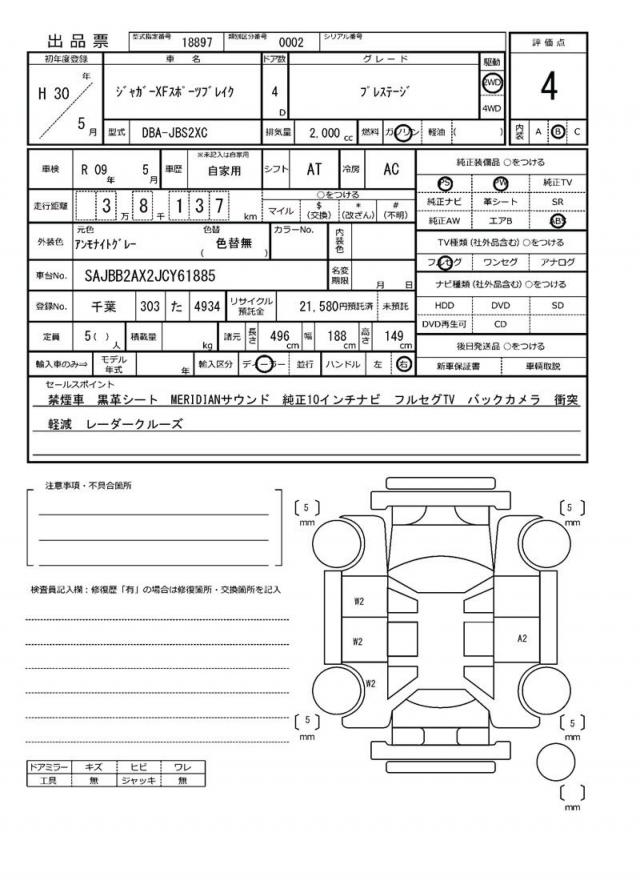 出品票 型式指定番号 18897 類別区分番号 0002 シリアル番号
初年度登録 車名 ドア数 グレード 駆動 評価点
H 30 年 5 月 ジャガーXFスポーツブレイク 4 D プレステージ 2WD 4WD 4
型式 DBA-JBS2XC 排気量 2,000 cc 燃料 ガソリン 軽油 ( ) 内装 A B C
車検 R 09 年 5 月 車歴 ※未記入は自家用 自家用 シフト AT 冷房 AC
走行距離 3 万 8 千 1 3 7 km ○をつける マイル $ (交換) * (改ざん) # (不明)
外装色 元色 アンモナイトグレー 色替 ( 色替無 ) カラーNo. 内装色
車台No. SAJBB2AX2JCY61885 名変期限 月 日
登録No. 千葉 303 た 4934 リサイクル預託金 21,580円預託済 未預託
定員 5( ) 人 積載量 kg 諸元 長さ 496 cm 幅 188 cm 高さ 149 cm
輸入車のみ⇒ モデル年式 年 輸入区分 ディーラー 並行 ハンドル 左 右
純正装備品 ○をつける
PS PW 純正TV
純正ナビ 革シート SR
純正AW エアB ABS
TV種類 (社外品含む) ○をつける
フルセグ ワンセグ アナログ
ナビ種類 (社外品含む) ○をつける
HDD DVD SD
DVD再生可 CD
後日発送品 ○をつける
新車保証書 車輌取説
セールスポイント
禁煙車 黒革シート MERIDIANサウンド 純正10インチナビ フルセグTV バックカメラ 衝突
軽減 レーダークルーズ
注意事項・不具合箇所
検査員記入欄：修復歴「有」の場合は修復箇所・交換箇所を記入
〔 5 〕 mm 〔 5 〕 mm
W2
W2 A2
W2
〔 5 〕 mm 〔 5 〕 mm
〔 〕 mm
ドアミラー キズ ヒビ ワレ
工具 無 ジャッキ 無